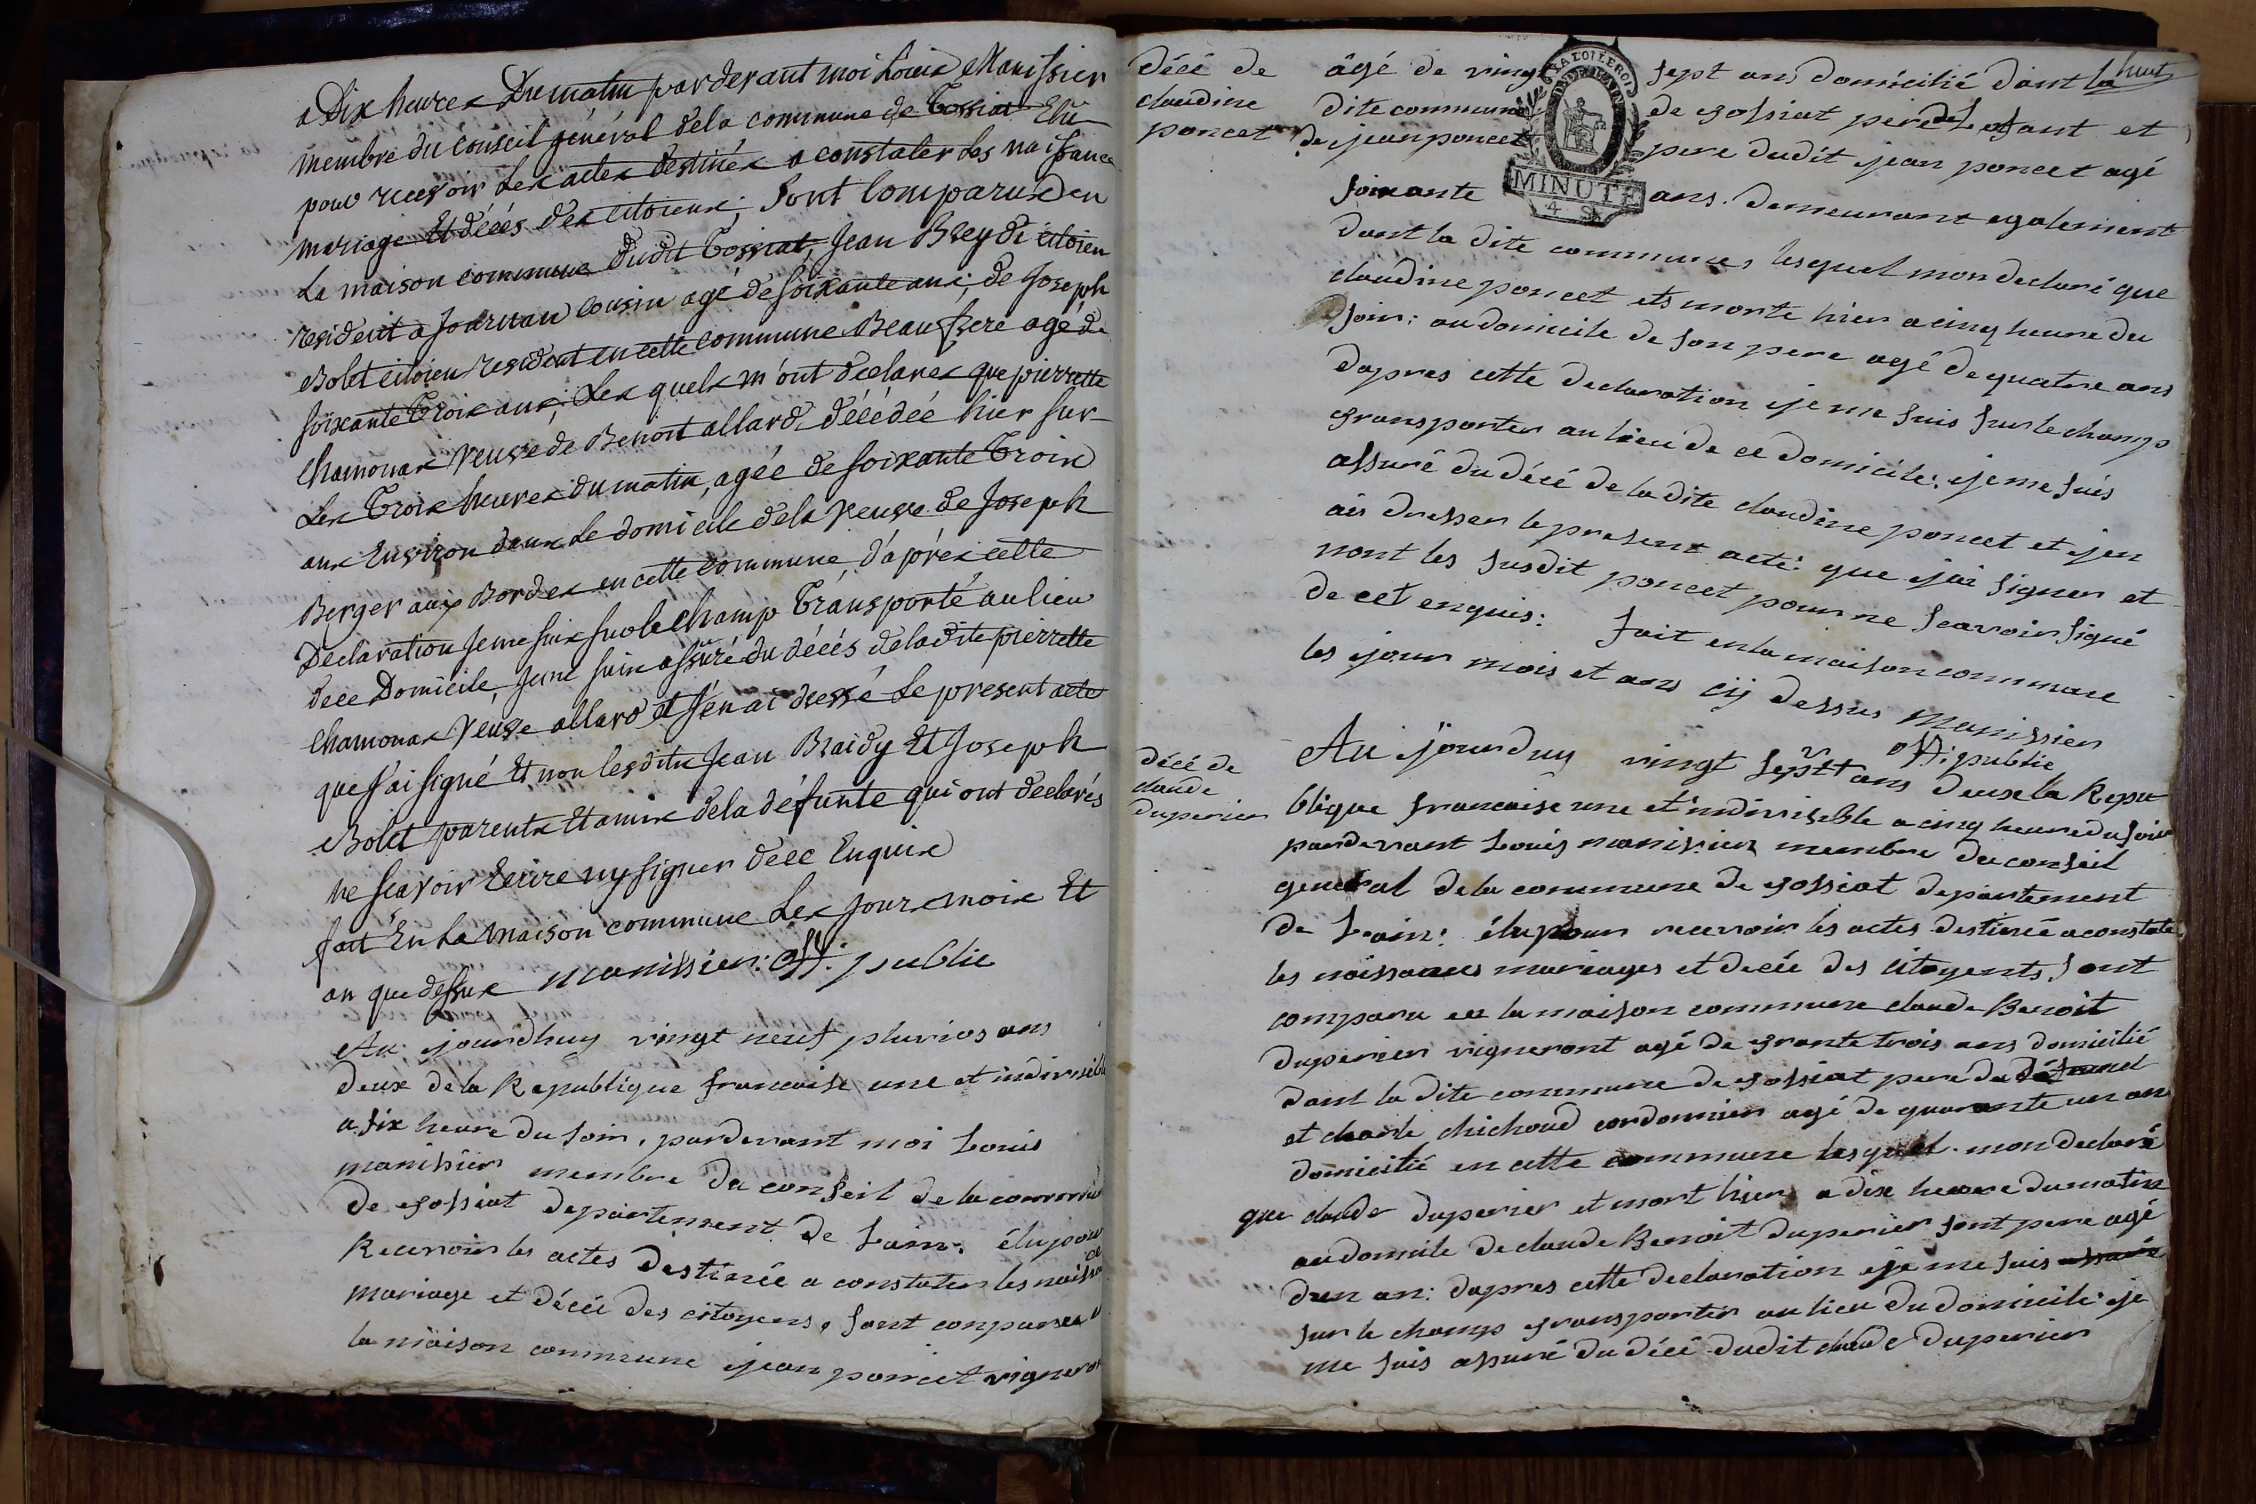 a Dix heures Du matin par devant moi Louis Manissier
membre du Conseil général dela commune de Tossiat Elu
pour recevoir Les actes destinés a constater Les naissance
mariage Et décés des citoiens; sont Comparus En
La maison commune dudit Tossiat, Jean Breydi citoien
resident a Journan cousin agé de soixante ans, de Joseph
Bolet citoien resident en cette commune Beaufrere agé de
soixante Trois ans; Les quels m'ont déclarés que pierrette
Chamonax veuve de Benoit allard décédée hier sur
Les Trois heures du matin, agée de soixante Trois
ans Environ dans Le domicile dela veuve de Joseph
Berger aux Bordes en cette commune, d'aprés cette
Declaration Je me suis sur le Champ Transporté au lieu
de ce Domicile, Je me suis assuré du décés deladite pierrette
Chamonax veuve allard et J'en ai dressé Le present acte
que J'ai signé Et non lesdits Jean Braidy Et Joseph
Bolet parents Et amis dela défunte qui ont déclarés
ne scavoir Ecrire ny signer de ce Enquis
fait En La maison commune Les jours mois Et
an que dessus manissier: off. public
Au jourdhuy vingt neuf pluvios ans
deux de la Republique francaise une et indivisible
a six heure du soir, pardevant moi Louis
manissier membre du conseil de la commune
de tossiat departement de Lain: élu pour
Recevoir les actes destinée a constater les naissance
mariage et décée des citoyens, sont comparus
la maison commune jean poncet vigneron
huit
décé de
claudine
poncet
âgé de vingt sept ans domicilié dant la
dite commune de tossiat pere del ofant et
de jean poncet pere dudit jean poncet agé
soixante ans. demeurant egalement
dant la dite commune, lesquel mon declaré que
claudine poncet ets morte hier a cinq heure du
soir: au domicile de son pere agé de quatre ans
dapres cette declaration je me suis sur le champ
transporter au lieu de ce domicile: je me suis
assuré du décé de la dite claudine poncet et jen
ais dresser le present acte: que jai signer et
nont les susdit poncet pour ne scavoir signé
de cet enquis: fait en la maison commune
les jour mois et ans cij dessus Manissier
off: public
décé de
claude
duperier
Au jourduy vingt sept v ans deuxe la Repu
blique francaise une et indivisible a cinq heure du soir
pardevant Louis manissier membre du conseil
general de la commune de tossiat departement
de Lain: élu pour recevoir les actes destinée a constater
les naissances mariages et decée des citoyents, sont
comparu en la maison commune claude Benoit
duperier vigneront agé de trante trois ans domicilié
dant la dite commune de tossiat pere du
et charle chichoud cordonnier agé de quarante un ans
domicilié en cette commune lesquel mon declaré
que claude duperier et mort hier a dix heure du matin
au domicile de claude Benoit duperier sont pere agé
dun an: dapres cette declaration je me suis assuré
sur le champ transporter au lieu du domicile: je
me suis assuré du décé dudit claude duperier
LA LOI LE ROI
MINUTE
4 S